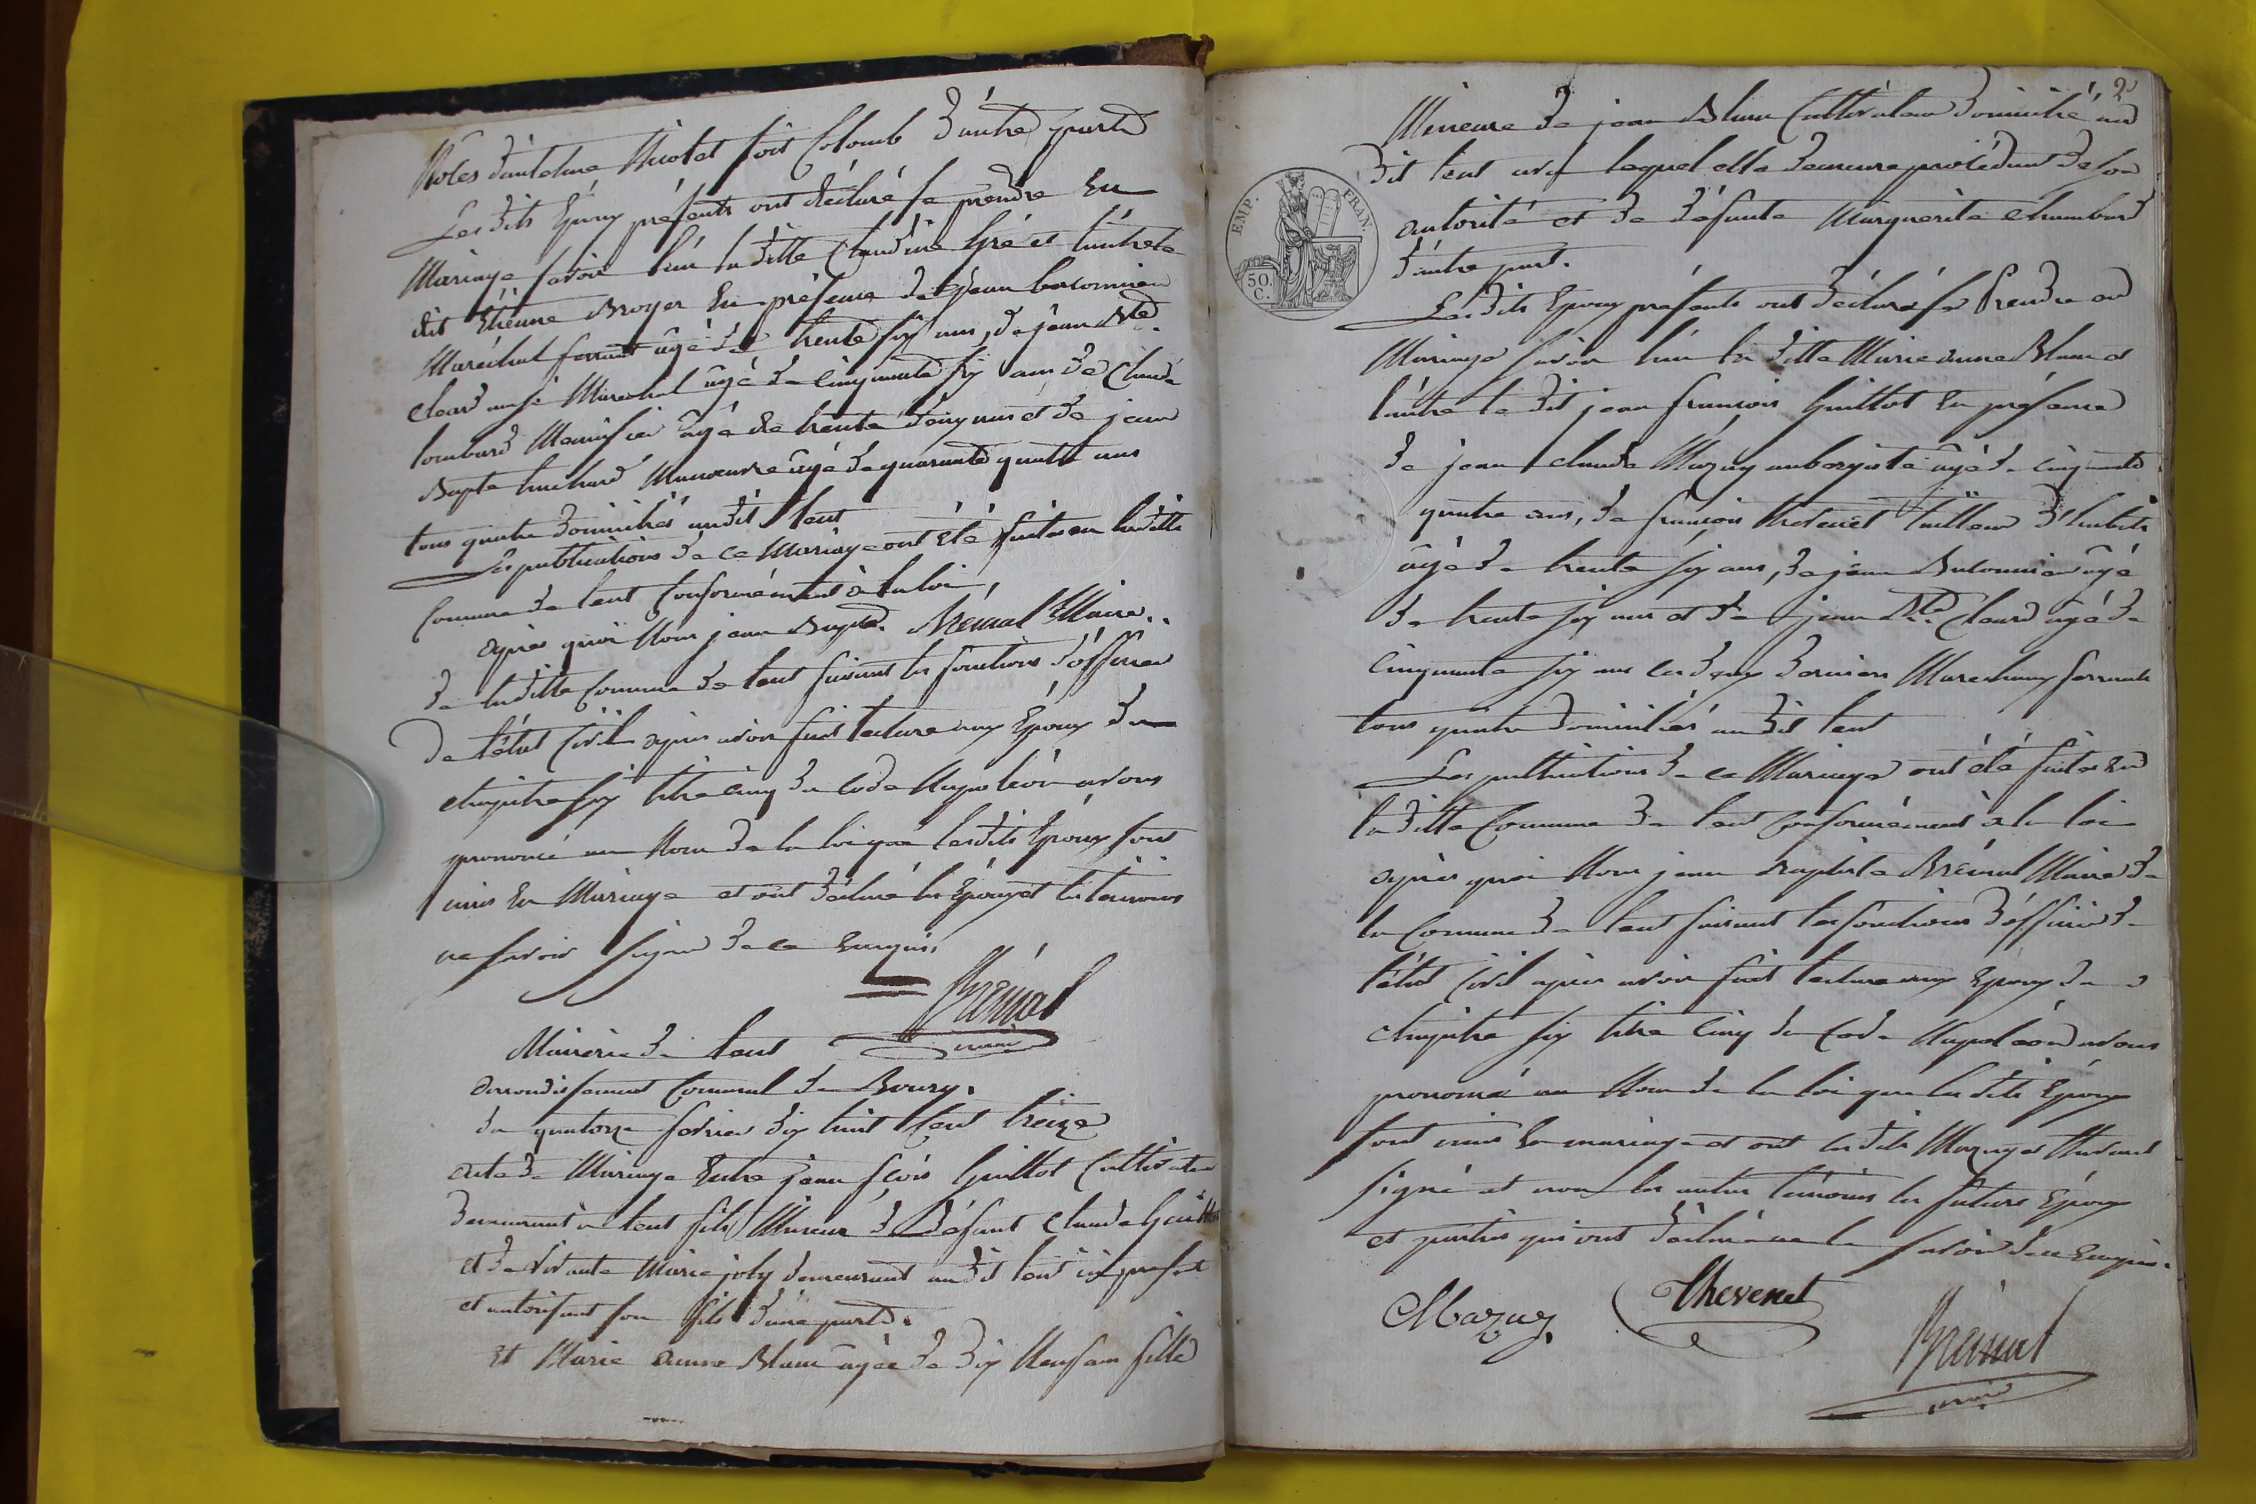 Notes d'antoine Nicolet foit Colomb d'autre part
Lesdits Epoux présents ont déclaré se prendre En
Mariage savoir l'un laditte Claudine Gré et l'autre le
dit Etienne Broyer En présence de jean
Maréchal ferrant âgé de trente six ans, de jean Bte.
Cloard aussi Marechal âgé de Cinquante six ans de Claude
lombard Menuisier âgé de trente deux ans et de jean
Bapte huchard Manoeuvre âgé de quarante quatre ans
tous quatre domiciliés audit lent
Les publications de ce Mariage ont été faites en laditte
Commune de lent Conformément à la loi,
après quoi Nous jean Bapte. Brénal Maire..
de laditte Commune de lent faisant les fonctions d'officier
de l'état Civil après avoir fait lecture aux Epoux du
chapitre six titre Cinq du Code Napoléon avons
prononcé au Nom de la loi que lesdits Epoux sont
unis En Mariage et ont déclaré les Epoux et les témoins
ne savoir signer de ce Enquis,
Brénal
maire
Mairie de lent
arrondissement Communal de Bourg.
du quatorze fevrier dix huit Cent treize
acte de Mariage Entre jean fçois Guillot Cultivateur
demeurant à lent fils Mineur de Défunt Claude Guillot
et de vivante Marie joly demeurant audit lent ici présente
et autorisant son fils d'une part.
Et Marie Anne Blanc âgée de dix Neuf ans fille
2
Mineure de jean Blanc Cultivateur domicilié au
dit lent avec lequel elle demeure procédant de son
autorité et de défunte Marguerite Chambard
d'autre part.
EMP. FRAN.
50. C.
Lesdits Epoux présents ont déclaré se Prendre en
Mariage savoir l'un la ditte Marie anne Blanc et
l'autre le dit jean françois Guillot En présence
de jean claude Mazuy aubergiste âgé de cinquante
quatre ans, de françois thevenet tailleur d'habits
âgé de trente six ans, de jean âgé
de trente six ans et de jean Bte. Cloard âgé de
cinquante six ans les deux derniers Marechaux ferrants
tous quatre domiciliés audit lent
Les publications de ce Mariage ont été faites En
la ditte Commune de lent Conformément à la loi
après quoi Nous jean Baptiste Brénal Maire de
la Commune de lent faisant les fonctions d'officier de
l'état Civil après avoir fait lecture aux Epoux du
chapitre six titre Cinq du Code Napoléon avons
prononcé au Nom de la loi que lesdits Epoux
sont unis En mariage et ont lesdits Mazuy et thevenet
signé et non les autres témoins les futurs Epoux
et parties qui ont déclaré ne le savoir de ce Enquis.
Mazuy
Thevenet
Brénal
maire